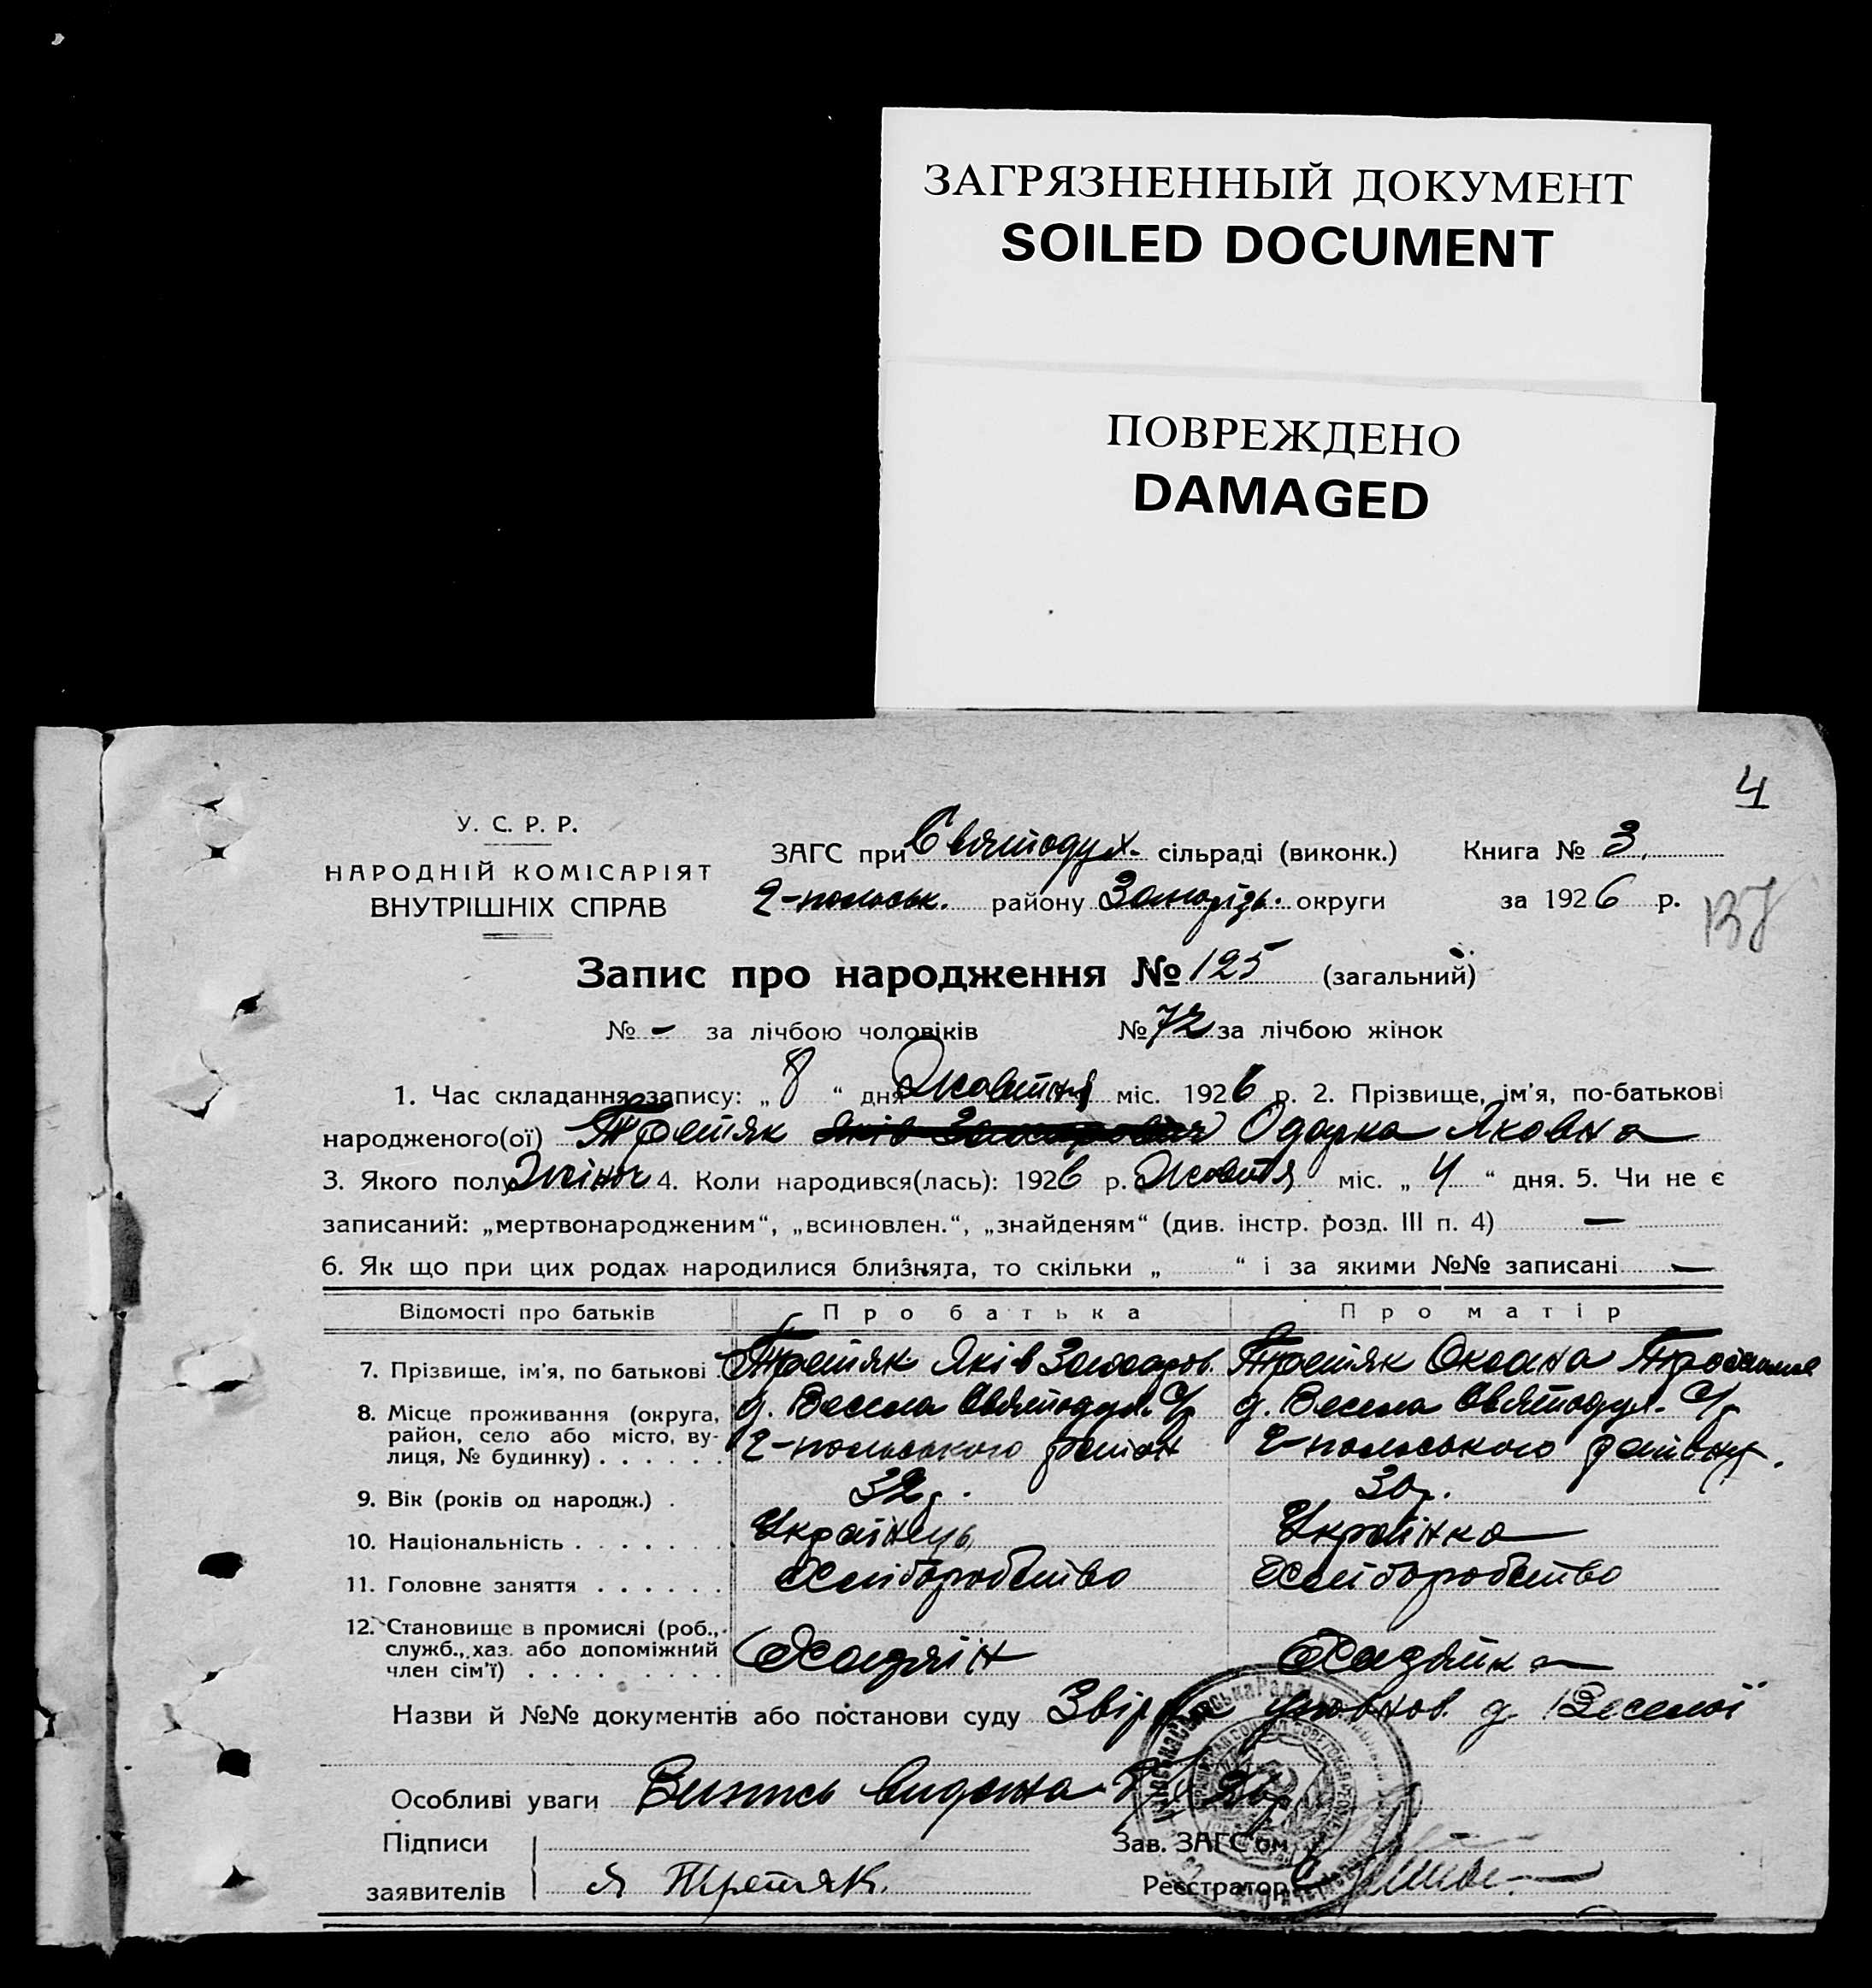 ЗАГРЯЗНЕННЫЙ ДОКУМЕНТ
SOILED DOCUMENT
ПОВРЕЖДЕНО
DAMAGED
4
У. С. Р. Р.
НАРОДНІЙ КОМІСАРІЯТ
ВНУТРІШНІХ СПРАВ
ЗАГС при Святодух. сільраді (виконк.) Книга № 3.
2-польськ. району Запорізь. округи за 1926 р.
Запис про народження № 125 (загальний)
№ - за лічбою чоловіків № 72 за лічбою жінок
1. Час складання запису: „ 8 “ дня Жовтня міс. 1926 р. 2. Прізвище, ім'я, по-батькові
народженого(ої) Третяк Одарка Яковна
3. Якого полу Жіноч 4. Коли народився(лась): 1926 р. Жовтя міс. „ 4 “ дня. 5. Чи не є
записаний: „мертвонародженим“, „всиновлен.“, „знайденям“ (див. інстр. розд. III п. 4) —
6. Як що при цих родах народилися близнята, то скільки „ “ і за якими №№ записані —
Відомості про батьків Про батька Про матір
7. Прізвище, ім'я, по батькові . Третяк Яків Захаров. Третяк Оксана
8. Місце проживання (округа, район, село або місто, вулиця, № будинку) . . . . . . д. Весела Святодух. С/р д. Весела Святодух. С/р
2-польського район 2-польського району.
9. Вік (років од народж.) . 32 р. 30 р.
10. Національність . . . . . . . Українець Українка
11. Головне заняття . . . . . . Хліборобство Хліборобство
12. Становище в промислі (роб., служб., хаз. або допоміжний член сім'ї) . . . . . . . . . Хазяїн Хазяйка
Назви й №№ документів або постанови суду уповнов. д. Веселої
Особливі уваги Випись видана
Підписи Зав. ЗАГС'ом
заявителів Я Третяк. Реєстратор